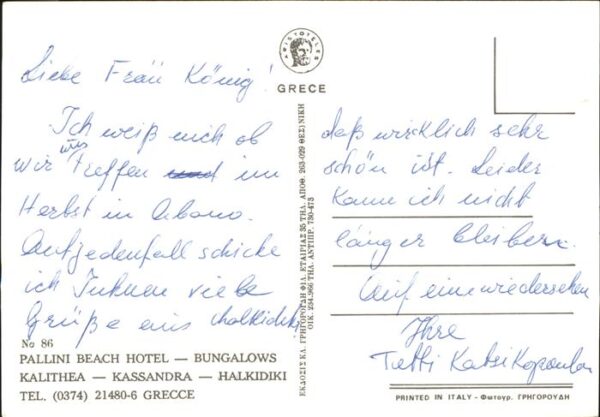 ARISTOTELES
GRECE
Liebe Fraü König!
Ich weiß nich ob
wir uns treffen im
Herbst in Abano.
Aufjedenfall schicke
ich Ihnen viele
Grüße aus Chalkidiki
daß wirklich sehr
schön ist. Leider
kann ich nicht
länger bleiben.
Auf einwiedersehen
Ihre
No 86
PALLINI BEACH HOTEL — BUNGALOWS
KALITHEA — KASSANDRA — HALKIDIKI
TEL. (0374) 21480-6 GRECCE
ΕΚΔΟΣΙΣ ΚΛ. ΓΡΗΓΟΡΟΥΔΗ ΦΙΛ. ΕΤΑΙΡΙΑΣ 35 ΤΗΛ. ΑΠΟΘ. 263-029 ΘΕΣ)ΝΙΚΗ
ΟΙΚ. 234.966 ΤΗΛ. ΑΝΤΙΠΡ. 730-473
PRINTED IN ITALY - Φωτογρ. ΓΡΗΓΟΡΟΥΔΗ